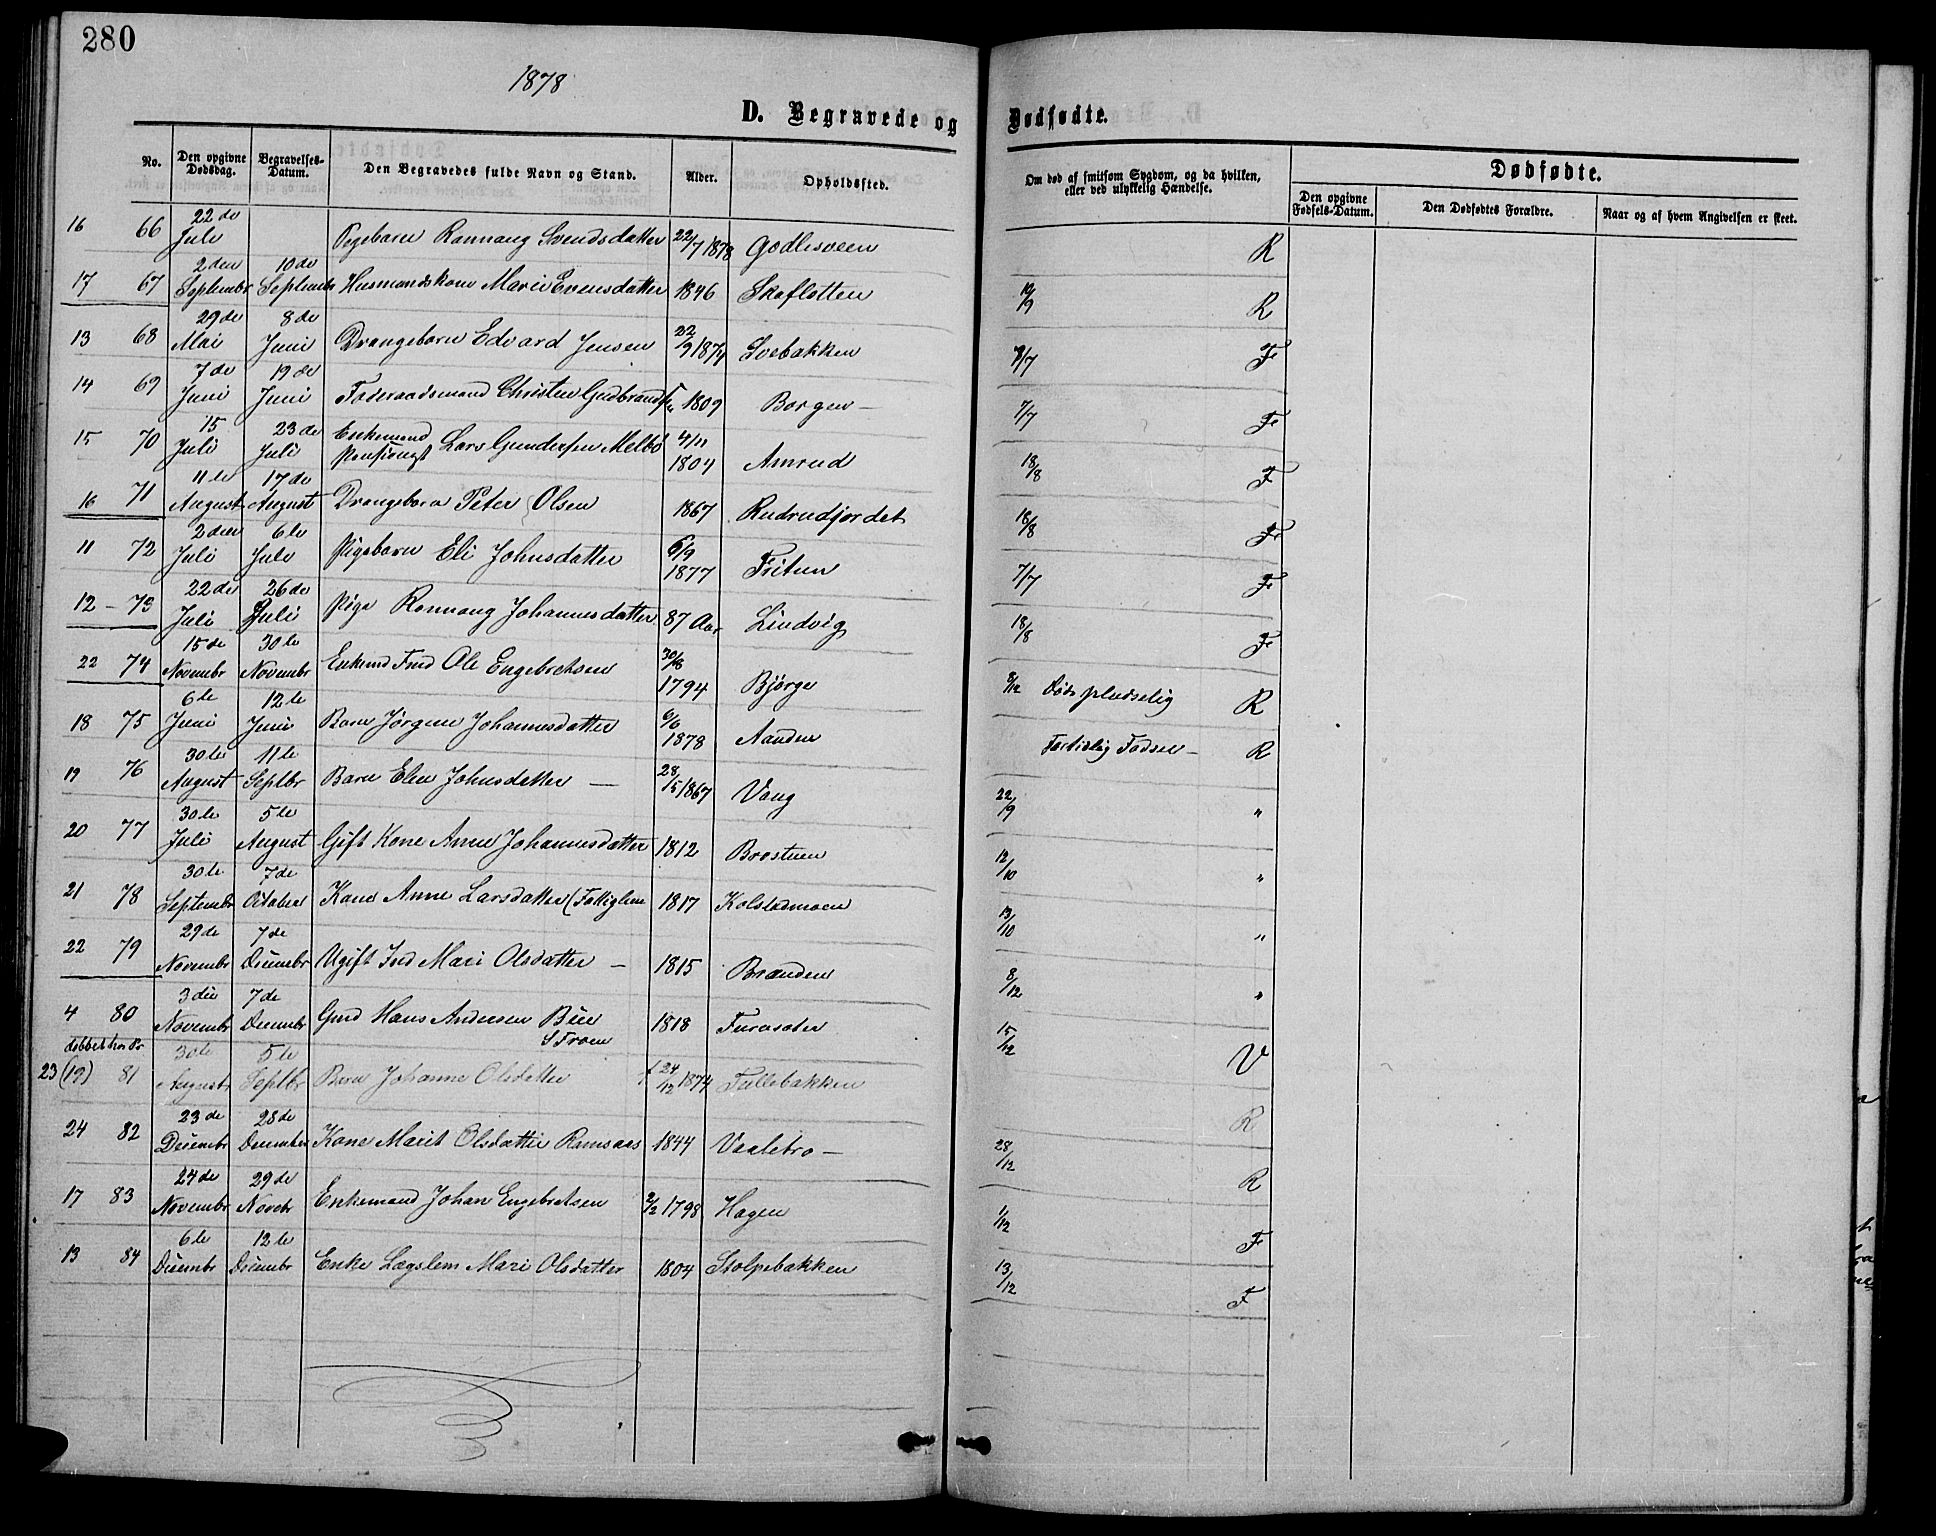 280
1878
D. Begravede og Dødfødte.
No. Den opgivne Dødsdag. Begravelses-Datum. Den Begravedes fulde Navn og Stand. Alder. Opholdssted. Om død af smitsom Sygdom, og da hvilken, eller ved ulykkelig Hændelse. Dødfødte.
Den opgivne Fødsels-Datum. Den Dødfødtes Forældre. Naar og af hvem Angivelsen er skeet.
16 66 22de Juli Pigebarn Rannaug Svendsdatter 22/7 1878 Godlisveen R
17 67 2den Septembr 10de Septembr Husmandskone Marie Evensdatter 1846 Skaflotten 10/9 R
13 68 29de Mai 8de Juni Drengebarn Edvard Jensen 22/9 1874 Svebakken 7/7 F
14 69 7de Juni 19de Juni Føderaadsmand Christen Gudbrandsen 1809 Borgen — 7/7 F
15 70 15 Juli 23de Juli Enkemand Lars Gundersen Melbö 4/11 1804 Amrud 18/8 F
16 71 11te August 17de August Drengebarn Peter Olsen 1867 Rudrudjordet 18/8 F
11 72 2den Juli 6te Juli Pigebarn Eli Johnsdatter 6/9 1877 Fritun 7/7 F
12 — 73 22de Juli 26de Juli Pige Rannaug Johannesdatter 87 Aar Lindvig 18/8 F
22 74 15de Novembr 30te Novembr Enkemd Ole Engebretsen 30/8 1794 Bjørge 8/12 Døde pludselig R
18 75 6te Juni 12te Juni Barn Jørgine Johannesdatter 6/6 1878 Aanden Fortidlig Fødsel — R
19 76 30te August 11te Septbr Barn Elen Johnsdatter — 28/5 1867 Vang 22/9 "
20 77 30te Juli 5te August Gift Kone Anne Johannesdatter 1812 Brostuen 12/10 "
21 78 30te Septembr 7de October Kone Anne Larsdatter (Fattiglem 1817 Kolstadmoen 13/10 "
22 79 29de Novembr 7de Decembr Ugift Ind Mari Olsdatter — 1815 Brænden 8/12 "
4 80 3die Novembr 7de Decembr Gmd Hans Andersen Büe S Froen 1818 Furuseter 15/12 V
23 (19) 81 30te August 5te Septbr Barn Johanne Olsdatter f 24/12 1874 Tullebakken R
24 82 23de Decembr 28de December Kone Marit Olsdatter Ramsaas 1844 Vaalebro — 28/12 R
17 83 24de Novembr 29de Novbr Enkemand Johan Engebretsen 2/2 1798 Hagen 1/12 F
13 84 6te Decembr 12te Decembr Enke Lægslem Mari Olsdatter 1804 Stolpebakken 13/12 F